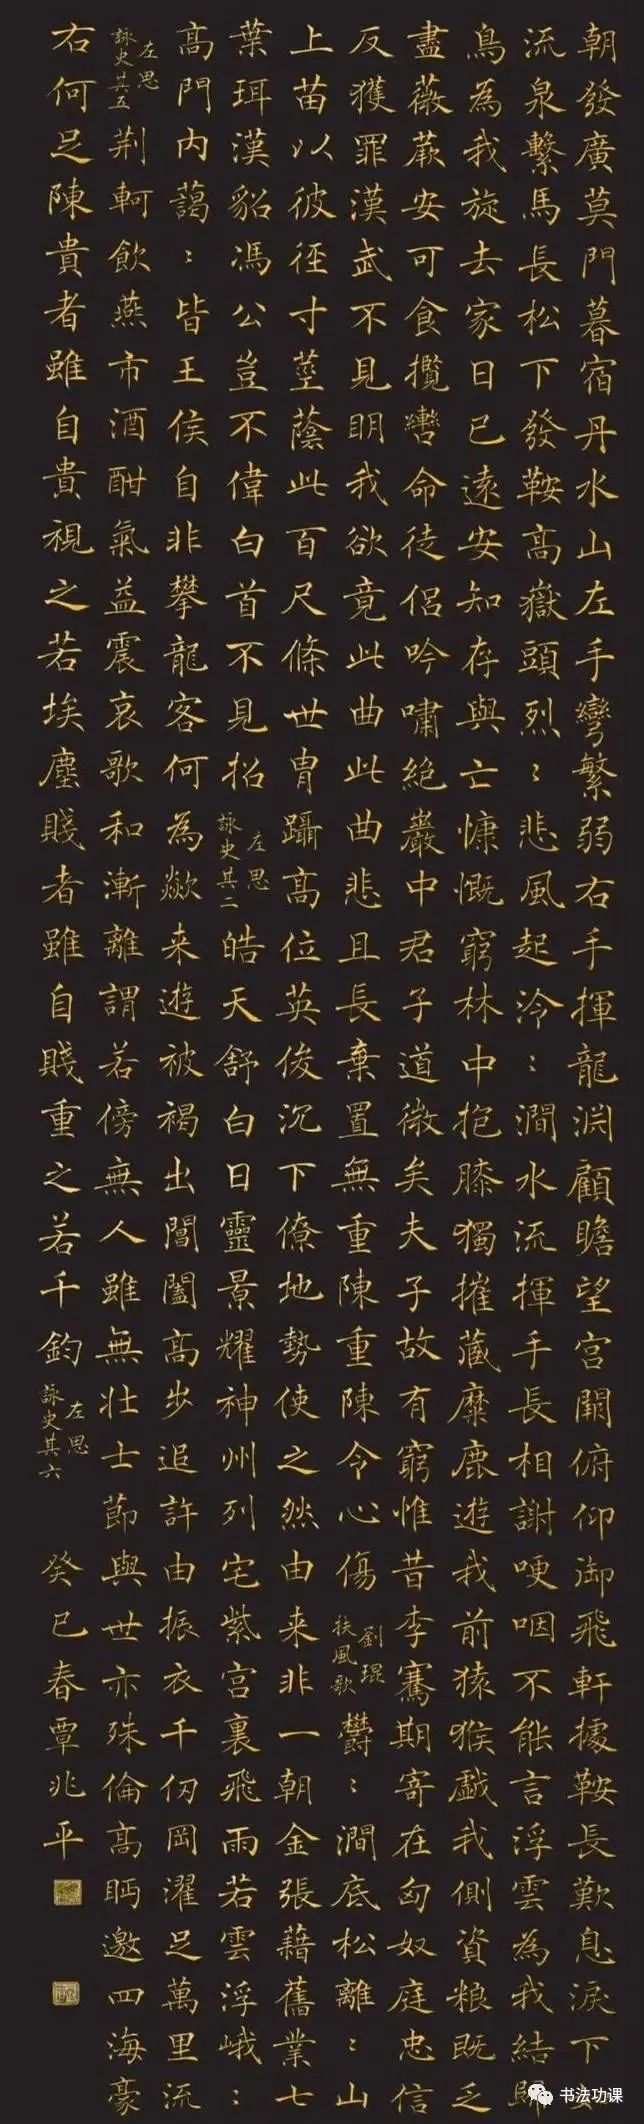 朝發廣莫門暮宿丹水山左手彎繁弱右手揮龍淵顧瞻望宮闕俯仰御飛軒據鞍長歎息淚下
流泉繫馬長松下發鞍高嶽頭烈〻悲風起泠〻澗水流揮手長相謝哽咽不能言浮雲為我結歸
鳥為我旋去家日已遠安知存與亡慷慨窮林中抱膝獨摧藏麋鹿遊我前猿猴戲我側資粮既乏
盡薇蕨安可食攬轡命徒侶吟嘯絕巖中君子道微矣夫子故有窮惟昔李騫期寄在匈奴庭忠信
反獲罪漢武不見明我欲竟此曲此曲悲且長棄置無重陳重陳令心傷劉琨扶風歌鬱〻澗底松離〻山
上苗以彼徑寸莖蔭此百尺條世冑躡高位英俊沉下僚地勢使之然由来非一朝金張藉舊業七
葉珥漢貂馮公豈不偉白首不見招左思詠史其二皓天舒白日靈景耀神州列宅紫宮裏飛雨若雲浮峨〻
高門內藹〻皆王侯自非攀龍客何為歘来遊被褐出閶闔高步追許由振衣千仞岡濯足萬里流
左思詠史其五荆軻飲燕市酒酣氣益震哀歌和漸離謂若傍無人雖無壯士節與世亦殊倫高眄邈四海豪
右何足陳貴者雖自貴視之若埃塵賤者雖自賤重之若千鈞左思詠史其六癸巳春覃兆平
书法功课